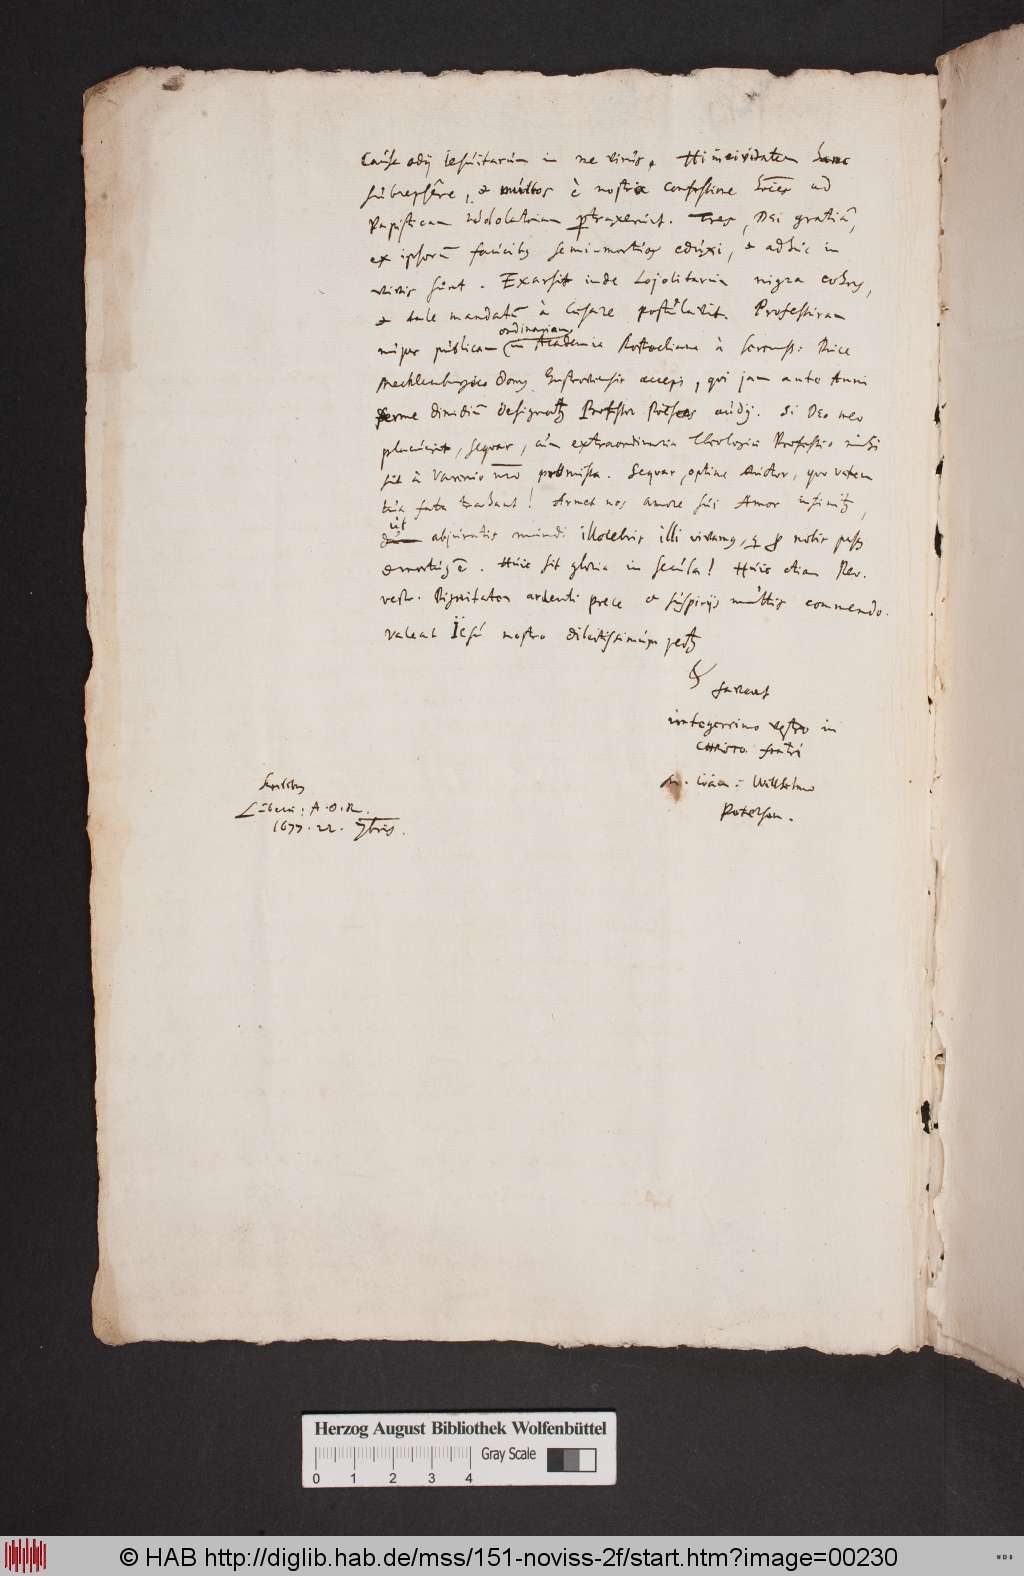 Causa odij Iesuitarum in me virus. Hi in civitatem hanc
subrepsêre, & multos è nostra confessione socies ad
Papisticam Idololatriam pertraxerunt. Tres, Dei gratiâ,
ex ipsorũ faucibus semi-mortuos eduxi, & adhuc in
vivis sunt. Exarsit inde Lojolitarum nigra cohors,
& tale mandatũ à Cæsare postulavit. Professuram
ordinariam
nuper publicam in Academia Rostochiana à Sereniss: Duce
Mecklenburgico Domus Gustroviensis accepi, qui jam ante Anni
ferme dimidiũ designatus Professor Poëseos audij. Si Deo meo
placuerit, sequar, cum extraordinaria Theologiæ Professio mihi
sit à Varenio promissa. Sequar, optime Auctor, quo vitam
tua fata trahant! Armet nos amore sui Amor infinitus,
ut
abjuratis mundi illecebris illi vivamus, qui pro nobis passus
& mortuus ẽ. Huic sit gloria in secula! Huic etiam Rev.
vestr. Dignitatem ardenti prece & suspirijs multis commendo.
Valeat Iesu nostro dilectissimum pectus
&
faveat
integerrimo vestro in
CHRISTO fratri
M. Ioan: Willhelmo
Petersen.
Lubecæ: A.O.R.
1677. 22. 7bris.
Herzog August Bibliothek Wolfenbüttel
Gray Scale
0 1 2 3 4
© HAB http://diglib.hab.de/mss/151-noviss-2f/start.htm?image=00230